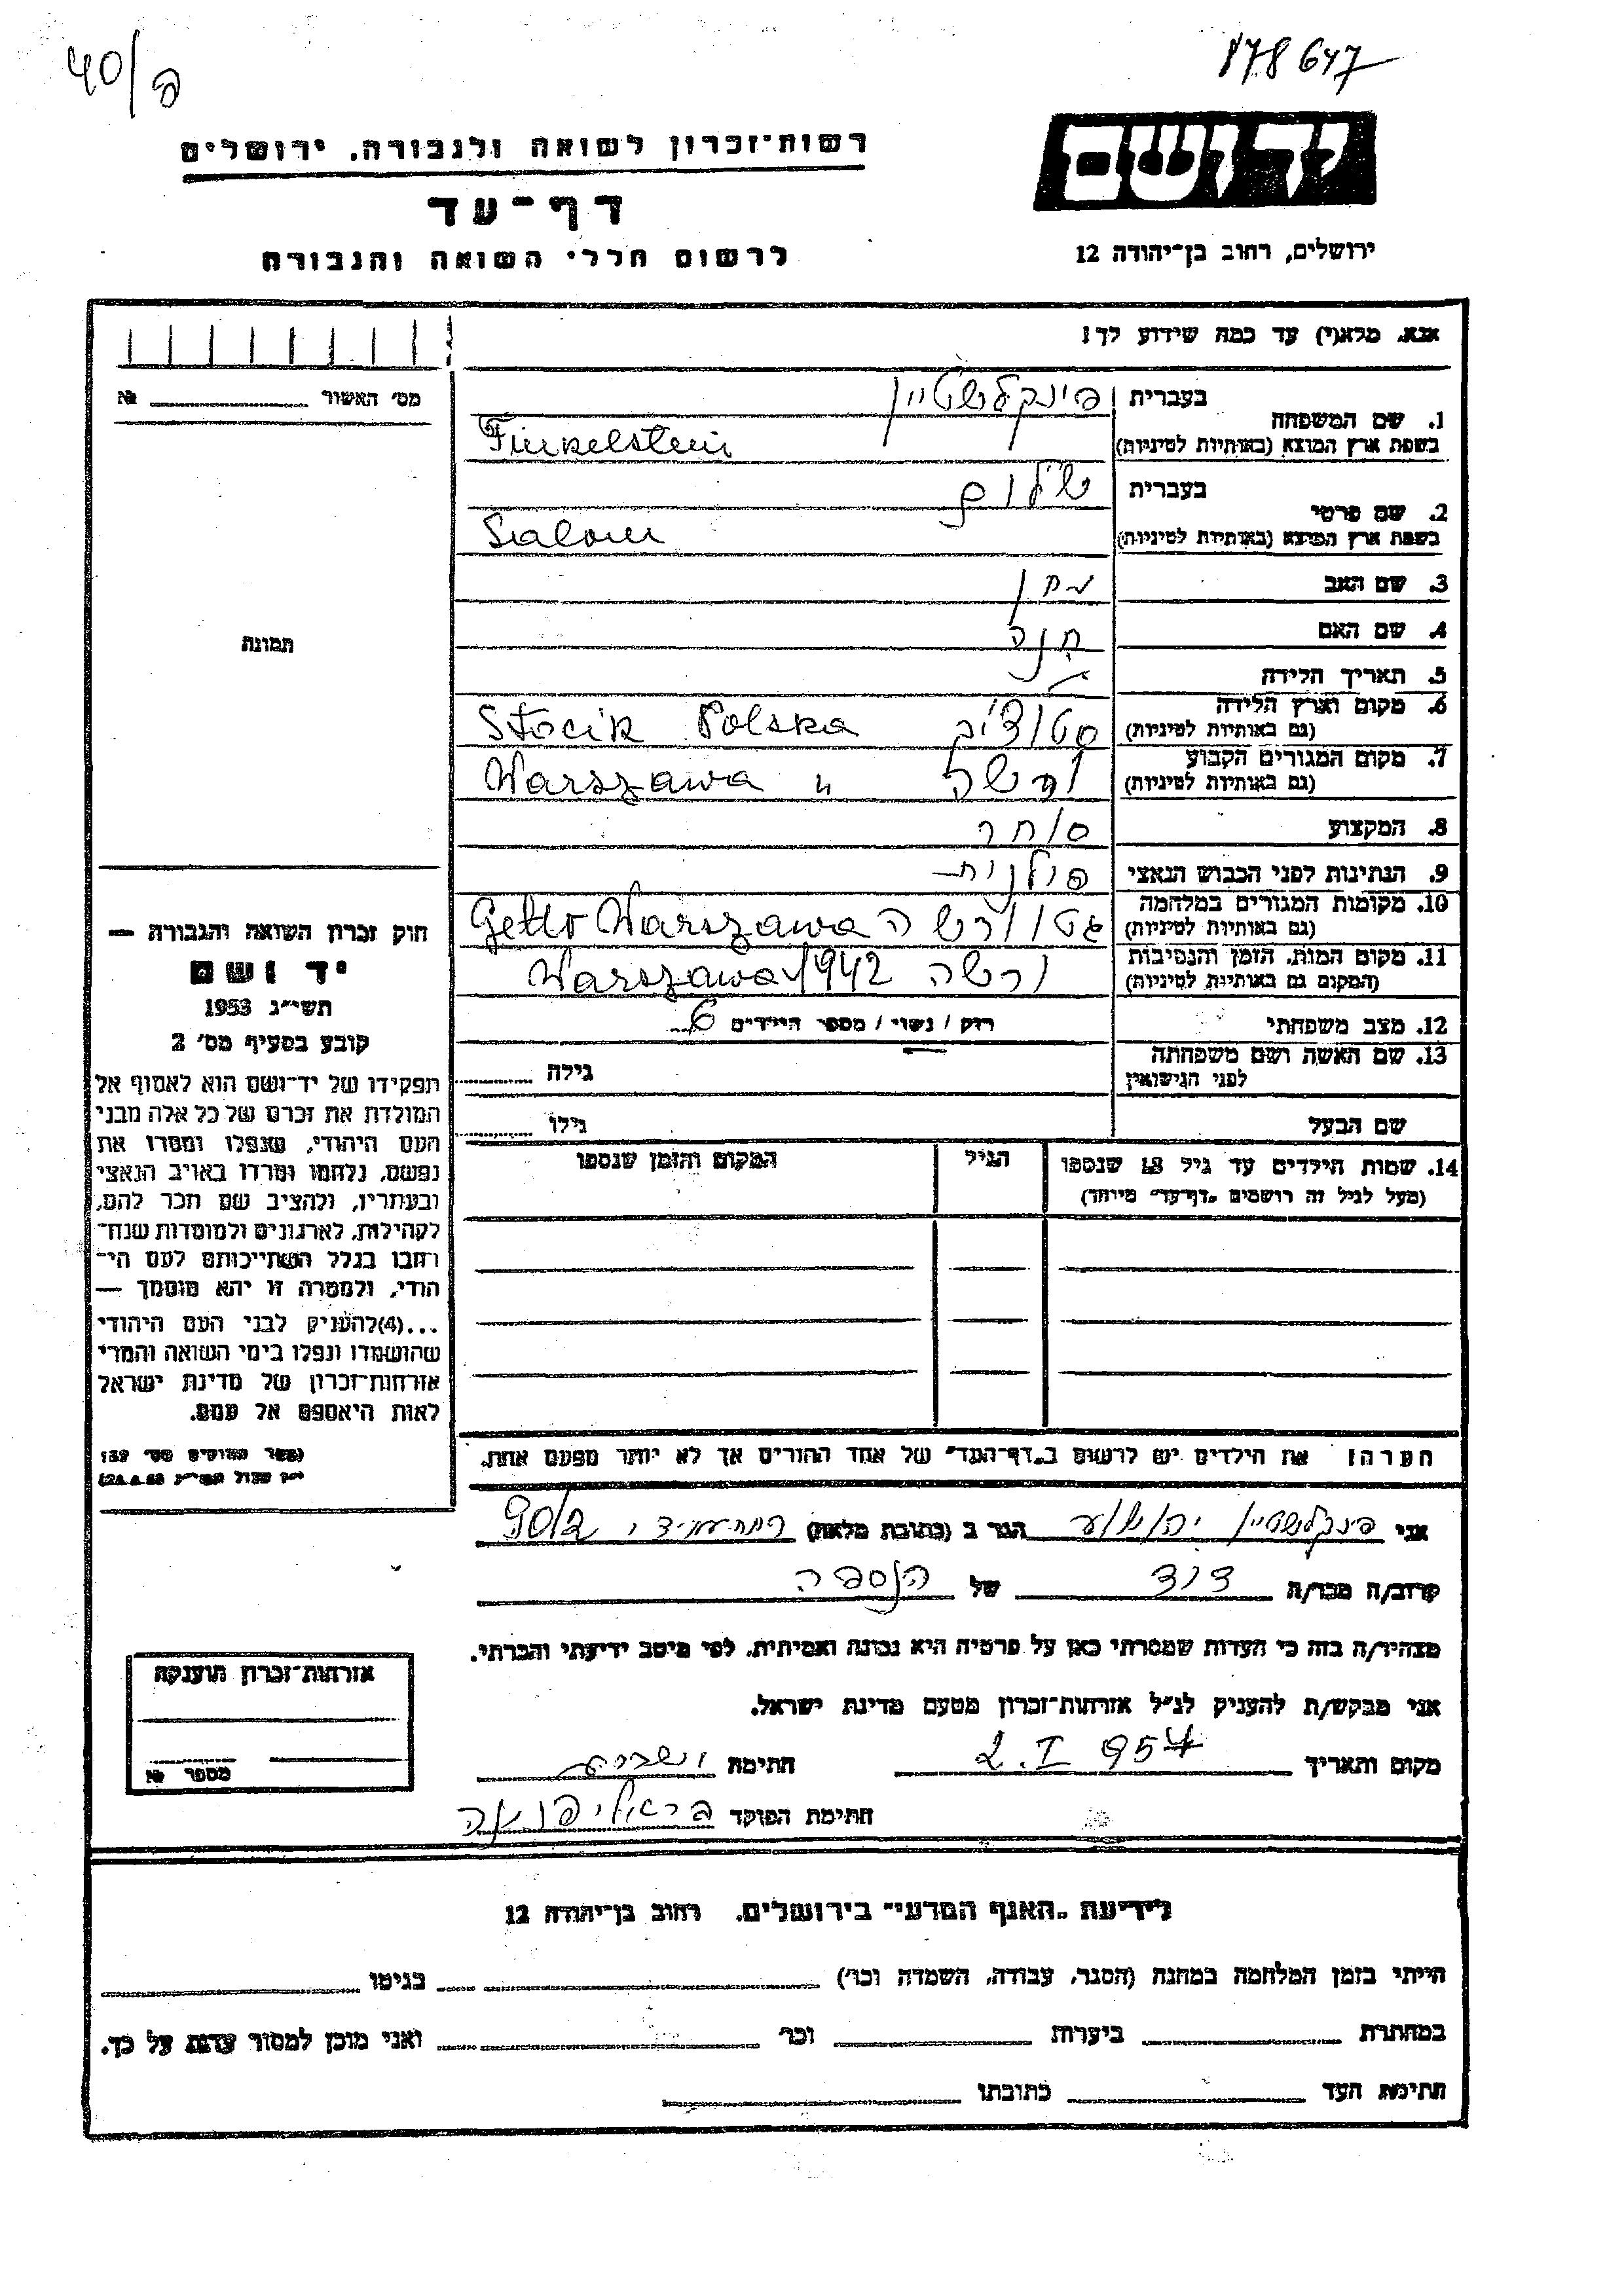 40/פ
178647
יד ושם
רשות־זכרון לשואה ולגבורה, ירושלים
דף־עד
לרשום חללי השואה והגבורה
ירושלים, רחוב בן־יהודה 12
אנא, מלא(י) עד כמה שידוע לך!
מס׳ האשור №
1. שם המשפחה
בעברית פינקלשטיין
בשפת ארץ המוצא (באותיות לטיניות) Finkelstein
2. שם פרטי
בעברית שלום
בשפת ארץ המוצא (באותיות לטיניות) Szalom
3. שם האב
4. שם האם חנה
תמונה
5. תאריך הלידה
6. מקום וארץ הלידה
(גם באותיות לטיניות) Stocik Polska
7. מקום המגורים הקבוע
(גם באותיות לטיניות) ורשה " Warszawa
8. המקצוע סוחר
9. הנתינות לפני הכבוש הנאצי פולנית
10. מקומות המגורים במלחמה
(גם באותיות לטיניות) גטו ורשה Getto Warszawa
11. מקום המות, הזמן והנסיבות
(המקום גם באותיות לטיניות) ורשה Warszawa 1942
12. מצב משפחתי רוק / נשוי / מספר הילדים 6
13. שם האשה ושם משפחתה
לפני הנישואין גילה
שם הבעל גילו
14. שמות הילדים עד גיל 18 שנספו הגיל המקום והזמן שנספו
(מעל לגיל זה רושמים „דף־עד״ מיוחד)
חוק זכרון השואה והגבורה —
יד ושם
תשי״ג 1953
קובע בסעיף מס׳ 2
תפקידו של יד־ושם הוא לאסוף אל
המולדת את זכרם של כל אלה מבני
העם היהודי, שנפלו ומסרו את
נפשם, נלחמו ומרדו באויב הנאצי
ובעוזריו, ולהציב שם וזכר להם,
לקהילות, לארגונים ולמוסדות שנח־
רחבו בגלל השתייכותם לעם הי־
הודי, ולמטרה זו יהא מוסמך —
...(4)להעניק לבני העם היהודי
שהושמדו ונפלו בימי השואה והמרי
אזרחות־זכרון של מדינת ישראל
לאות היאספם אל עמם.
הערה! את הילדים יש לרשום ב„דף־העד״ של אחד ההורים אך לא יותר מפעם אחת.
אני פינקלשטיין יהושע הגר ב (כתובת מלאה)
קרוב/ה מכר/ה דוד של הנספה
מצהיר/ה בזה כי העדות שמסרתי כאן על פרטיה היא נכונה ואמיתית, לפי מיטב ידיעתי והכרתי.
אני מבקש/ת להעניק לנ״ל אזרחות־זכרון מטעם מדינת ישראל.
מקום ותאריך 2.I 957 חתימה
חתימת הפוקד
אזרחות־זכרון הוענקה
מספר №
לידיעת „האגף המדעי״ בירושלים, רחוב בן־יהודה 12
הייתי בזמן המלחמה במחנה (הסגר, עבודה, השמדה וכו׳) בגיטו
במחתרת ביערות וכו׳ ואני מוכן למסור עדות על כך.
חתימת העד כתובתו